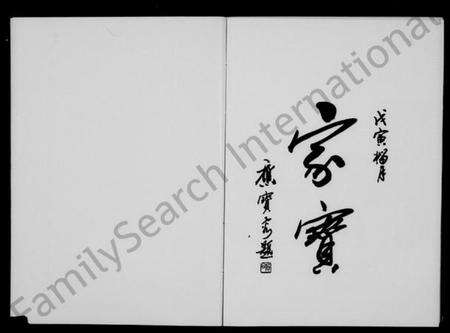 戊寅榴月
家寶
寶
題
FamilySearch International